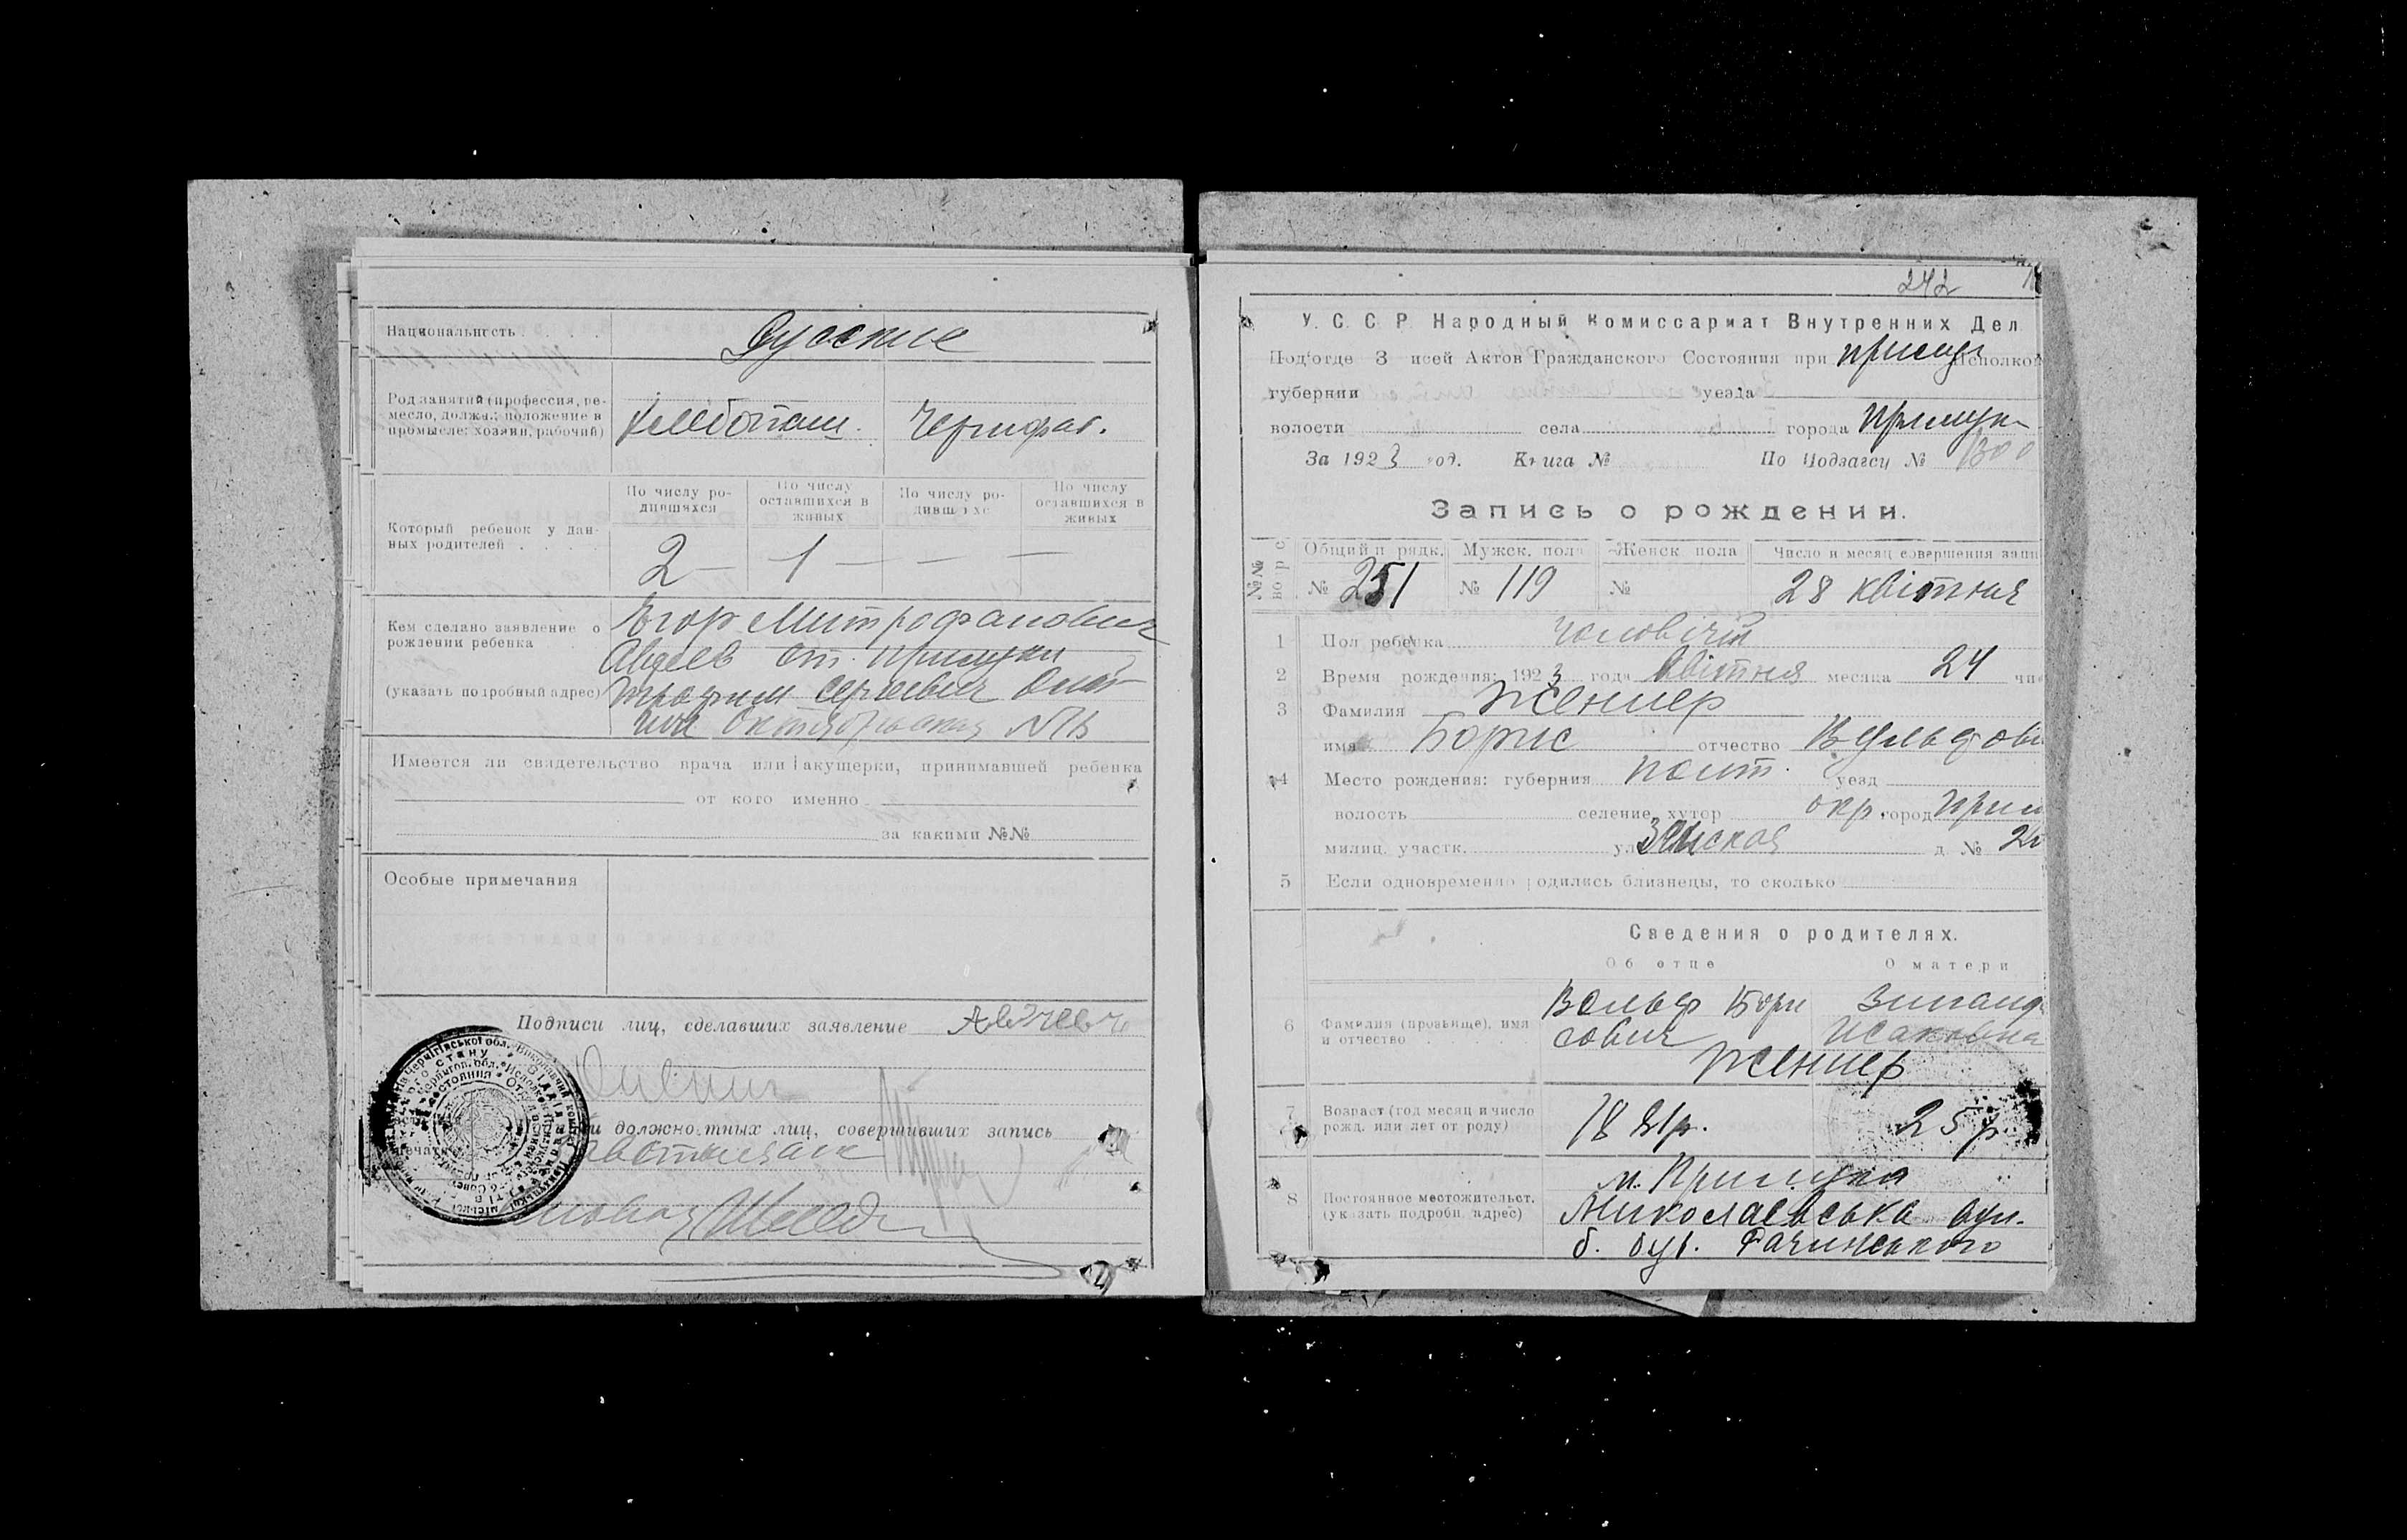 Национальность
Русские
Род занятий (профессия, ре-
месло, должн. положение в
промысле: хозяин, рабочий)
Хлебопаш.
Который ребенок у дан-
ных родителей
По числу ро-
дившихся
По числу
оставшихся в
живых
По числу ро-
дившихс
По числу
оставшихся в
живых
2 — 1 — — —
Кем сделано заявление о
рождении ребенка
(указать подробный адрес)
Егор Митрофанович
Авдеев ст. Прилуки
Трофим Сергеевич
Октябрьская
Имеется ли свидетельство врача или акушерки, принимавшей ребенка
от кого именно
за какими №№
Особые примечания
Подписи лиц, сделавших заявление
и должностных лиц, совершивших запись
242
У. С. С. Р. Народный Комиссариат Внутренних Дел
Подотде З исей Актов Гражданского Состояния при Прилуц Исполком
губернии уезда
волости села города Прилуки
За 1923 год. Книга № По Подзагсу №
Запись о рождении.
№№
Общий п рядк. Мужск. пола Женск пола Число и месяц совершения запи
№ 251 № 119 № 28 квітня
1 Пол ребенка чоловічій
2 Время рождения: 1923 года квітня месяца 24 чи
3 Фамилия Женнер
имя Борис отчество Вульфови
4 Место рождения: губерния Полт. уезд
волость селение, хутор окр. город Прил
милиц. участк. ул Земская д. №
5 Если одновременно родились близнецы, то сколько
Сведения о родителях.
Об отце О матери
6 Фамилия (прозвище), имя
и отчество
Вольф Бори
сович
Зинаид
Исаковна
Женнер
7 Возраст (год месяц и число
рожд. или лет от роду)
25 р.
8 Постоянное местожительст.
(указать подробн. адрес)
м. Прилука
Миколаевська вул.
б. буд.